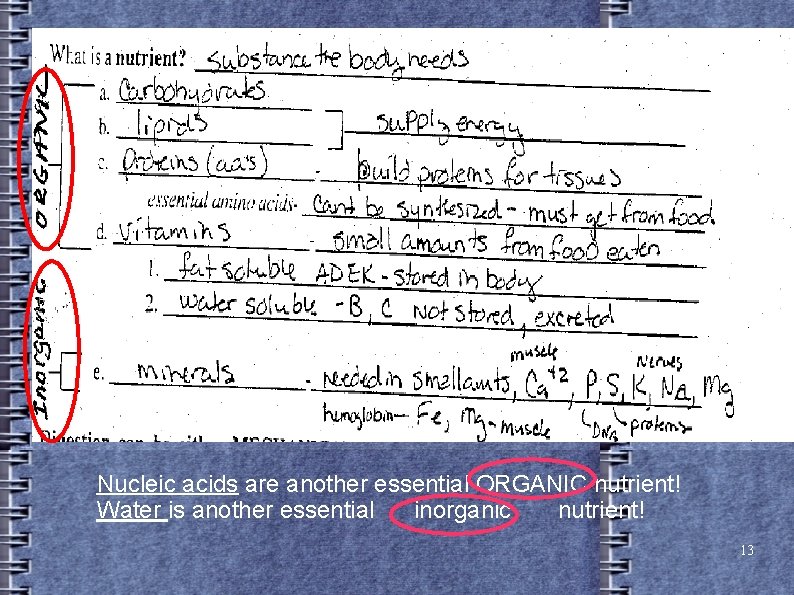 What is a nutrient? Substance the body needs
ORGANIC
a. Carbohydrates
b. lipids
supply energy
c. proteins (aa's) - build proteins for tissues
essential amino acids- Cant be synthesized - must get from food
d. vitamins - small amounts from food eaten
1. fat soluble ADEK - stored in body
2. water soluble - B, C Not stored, excreted
Inorganic
muscle nerves
e. minerals - needed in small amnts, Ca+2, P, S, K, Na, Mg
hemoglobin - Fe, Mg - muscle DNA proteins
Nucleic acids are another essential ORGANIC nutrient!
Water is another essential inorganic nutrient!
13